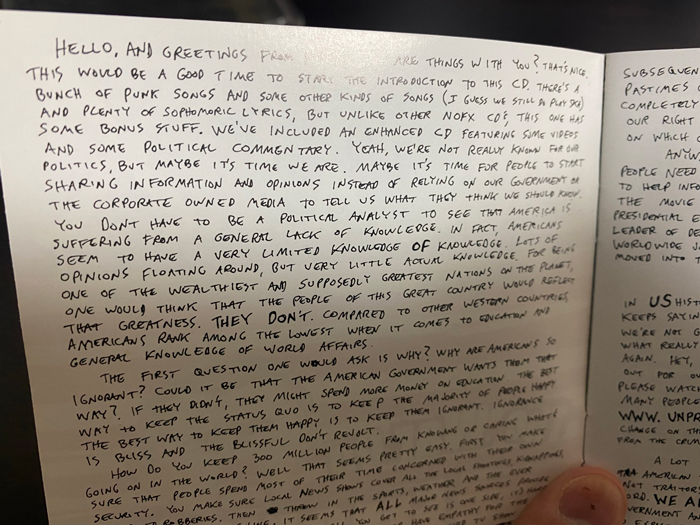 HELLO, AND GREETINGS FROM ARE THINGS WITH YOU? THAT'S NICE.
THIS WOULD BE A GOOD TIME TO START THE INTRODUCTION TO THIS CD. THERE'S A
BUNCH OF PUNK SONGS AND SOME OTHER KINDS OF SONGS (I GUESS WE STILL DO PLAY SKA)
AND PLENTY OF SOPHOMORIC LYRICS, BUT UNLIKE OTHER NOFX CD'S, THIS ONE HAS
SOME BONUS STUFF. WE'VE INCLUDED AN ENHANCED CD FEATURING SOME VIDEOS
AND SOME POLITICAL COMMENTARY. YEAH, WE'RE NOT REALLY KNOWN FOR OUR
POLITICS, BUT MAYBE IT'S TIME WE ARE. MAYBE IT'S TIME FOR PEOPLE TO START
SHARING INFORMATION AND OPINIONS INSTEAD OF RELYING ON OUR GOVERNMENT OR
THE CORPORATE OWNED MEDIA TO TELL US WHAT THEY THINK WE SHOULD KNOW.
YOU DON'T HAVE TO BE A POLITICAL ANALYST TO SEE THAT AMERICA IS
SUFFERING FROM A GENERAL LACK OF KNOWLEDGE. IN FACT, AMERICANS
SEEM TO HAVE A VERY LIMITED KNOWLEDGE OF KNOWLEDGE. LOTS OF
OPINIONS FLOATING AROUND, BUT VERY LITTLE ACTUAL KNOWLEDGE. FOR BEING
ONE OF THE WEALTHIEST AND SUPPOSEDLY GREATEST NATIONS ON THE PLANET,
ONE WOULD THINK THAT THE PEOPLE OF THIS GREAT COUNTRY WOULD REFLECT
THAT GREATNESS. THEY DON'T. COMPARED TO OTHER WESTERN COUNTRIES,
AMERICANS RANK AMONG THE LOWEST WHEN IT COMES TO EDUCATION AND
GENERAL KNOWLEDGE OF WORLD AFFAIRS.
THE FIRST QUESTION ONE WOULD ASK IS WHY? WHY ARE AMERICANS SO
IGNORANT? COULD IT BE THAT THE AMERICAN GOVERNMENT WANTS THEM THAT
WAY? IF THEY DIDN'T, THEY MIGHT SPEND MORE MONEY ON EDUCATION. THE BEST
WAY TO KEEP THE STATUS QUO IS TO KEEP THE MAJORITY OF PEOPLE HAPPY
THE BEST WAY TO KEEP THEM HAPPY IS TO KEEP THEM IGNORANT. IGNORANCE
IS BLISS AND THE BLISSFUL DON'T REVOLT.
HOW DO YOU KEEP 300 MILLION PEOPLE FROM KNOWING OR CARING WHAT'S
GOING ON IN THE WORLD? WELL THAT SEEMS PRETTY EASY. FIRST, YOU MAKE
SURE THAT PEOPLE SPEND MOST OF THEIR TIME CONCERNED WITH THEIR OWN
SECURITY. YOU MAKE SURE LOCAL NEWS SHOWS COVER ALL THE LOCAL SHOOTINGS, KIDNAPPINGS,
ROBBERIES. THEN THROW IN THE SPORTS, WEATHER AND THE
IT SEEMS THAT ALL MAJOR NEWS SOURCES PROVIDE
YOU GET TO SEE IS ONE SIDE,
HAVE EMPATHY FOR THE
SUBSEQUEN
PASTIMES
COMPLETELY
OUR RIGHT
ON WHICH
ANYW
PEOPLE NEED
TO HELP INF
THE MOVIE
PRESIDENTIAL
LEADER OF DE
WORLDWIDE
MOVED INTO
IN US HIST
KEEPS SAYIN
WE'RE NOT G
WHAT REALLY
AGAIN. HEY,
OUT FOR OU
PLEASE WATC
MANY PEOPLE
WWW. UNPR
CHANGE ON TH
FROM THE
A LOT
AMERICAN
NOT TRAITOR
WE A
VERNMENT AN